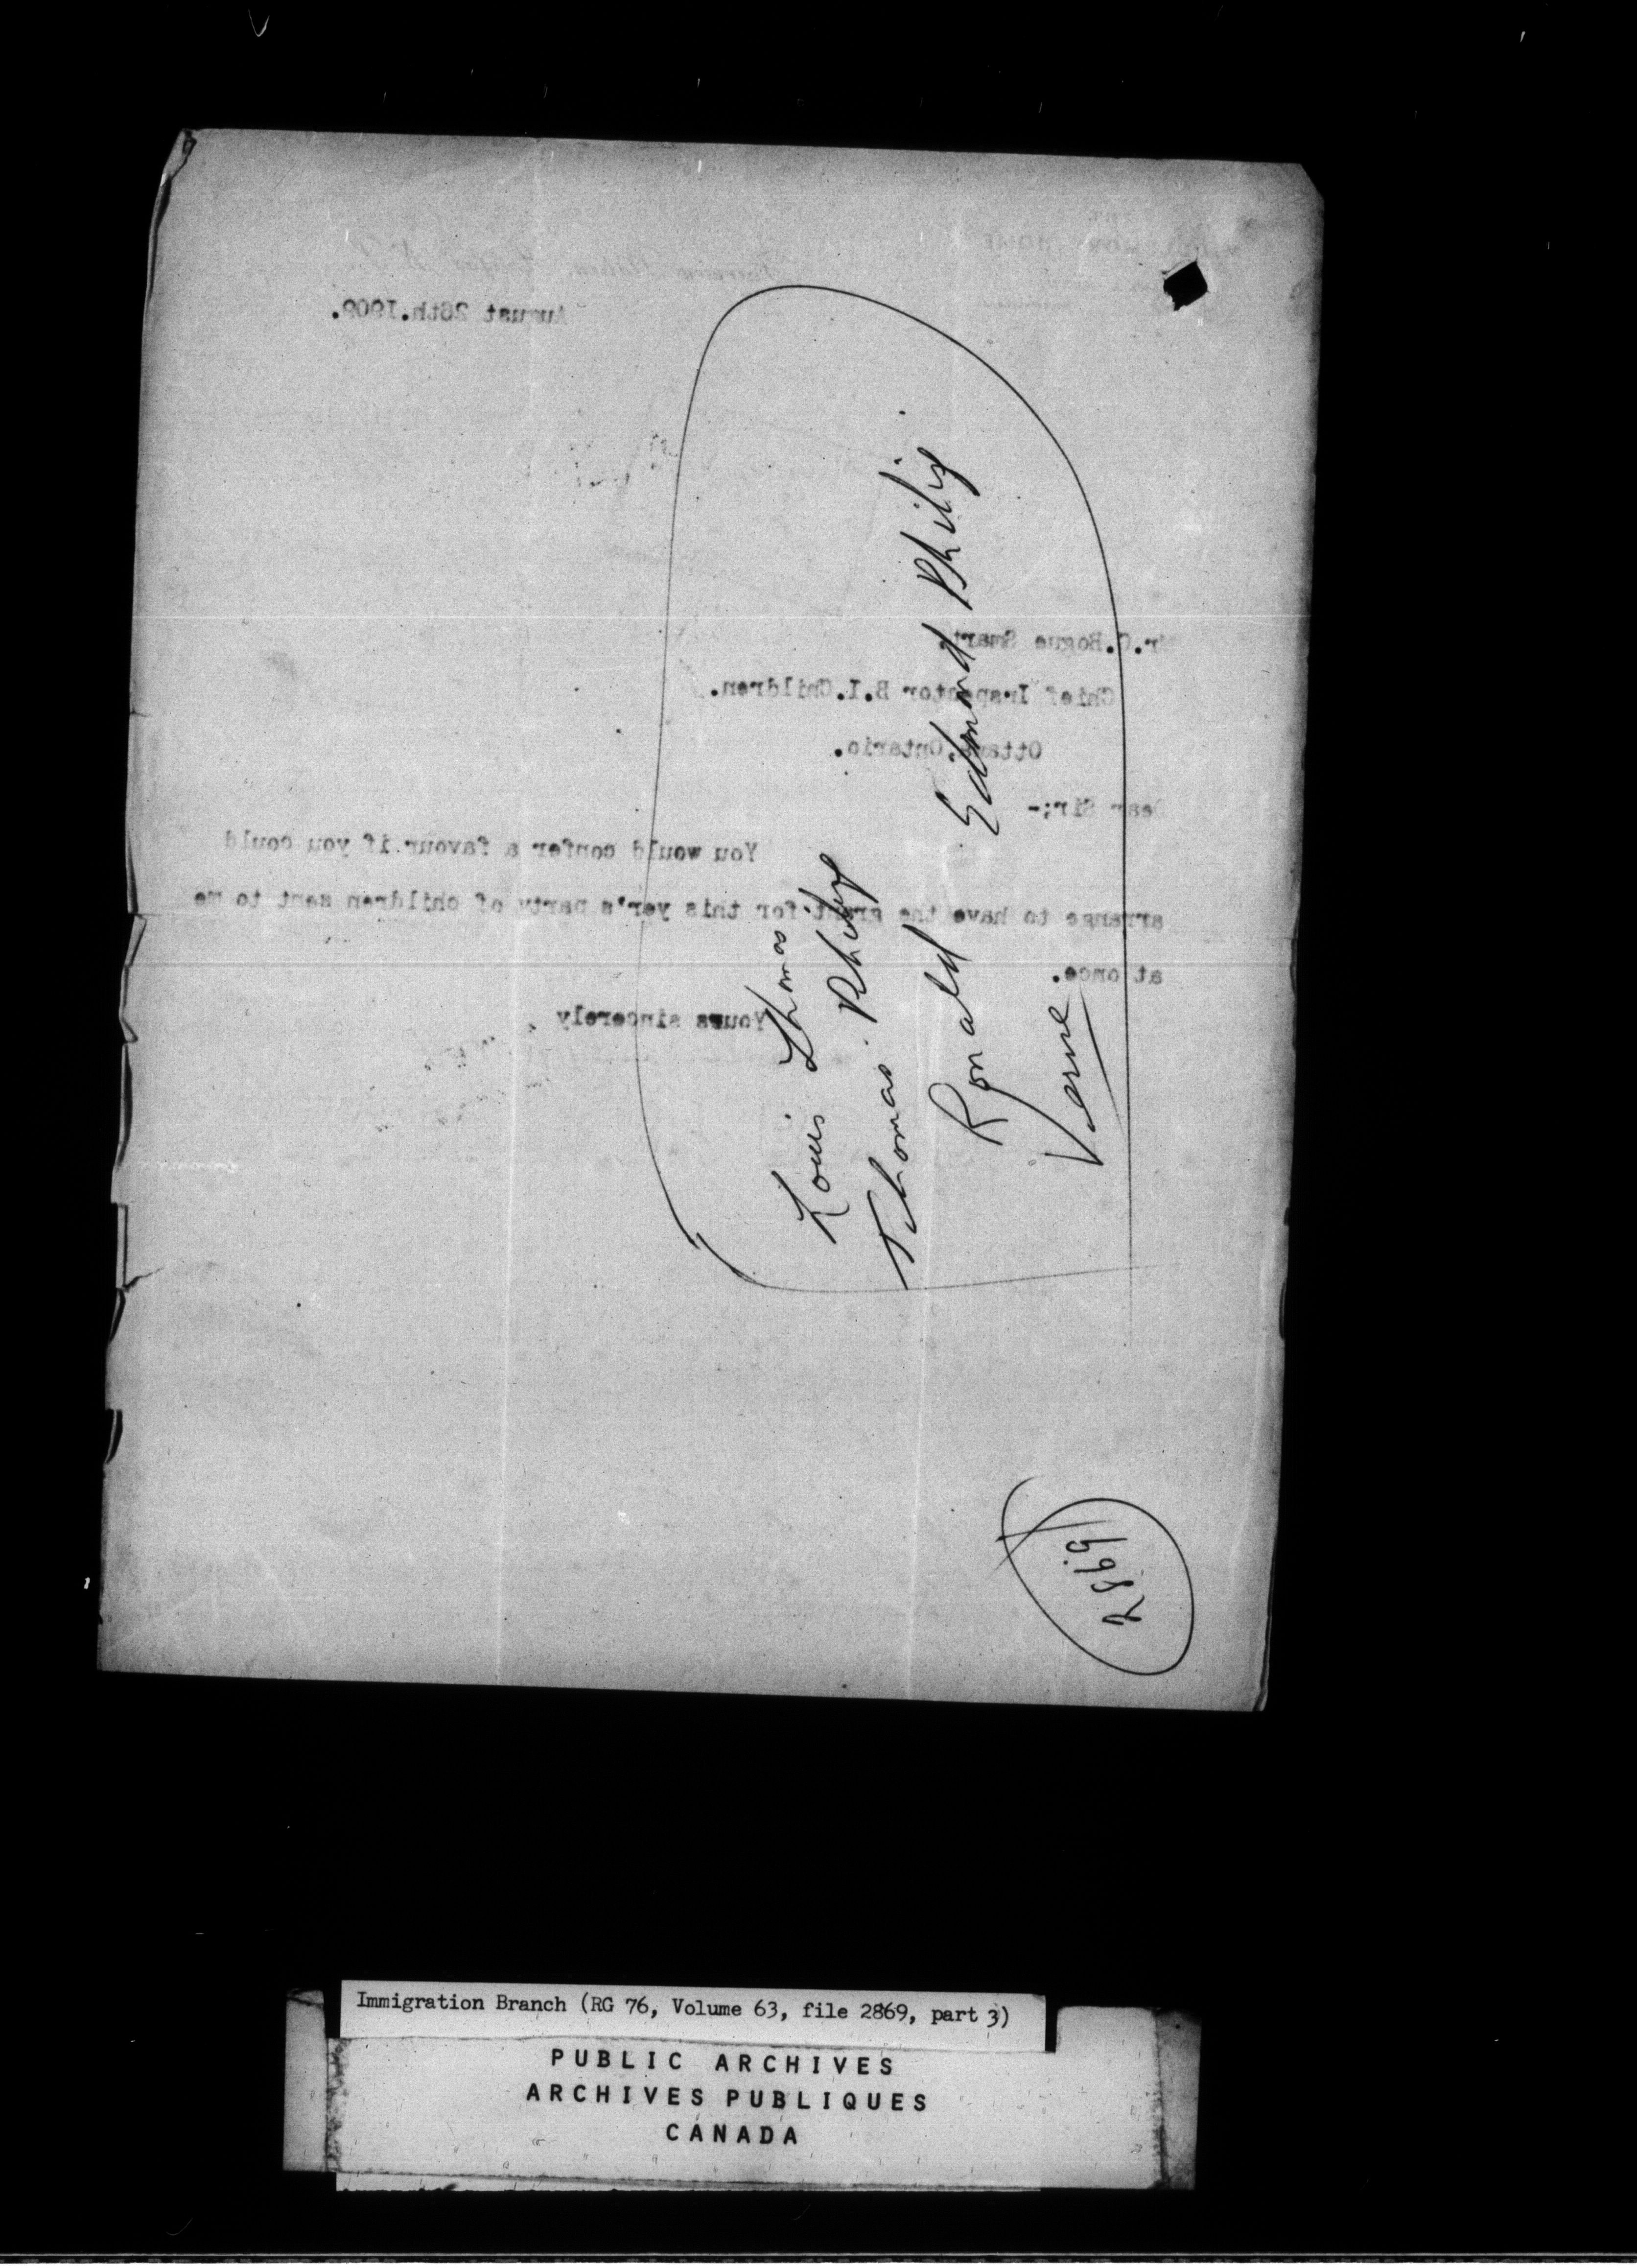 August 26th.1909.
Mr.G.Bogue Smart.
Chief Inspector B.I.Children.
Ottawa,Ontario.
Dear Sir;-
You would confer a favour if you could
arrange to have the grant for this yer's party of children sent to me
at once.
Yours sincerely
Louis Thomas
Thomas Philip
Ronald Edmond Philip
Verne
2869
Immigration Branch (RG 76, Volume 63, file 2869, part 3)
PUBLIC ARCHIVES
ARCHIVES PUBLIQUES
CANADA